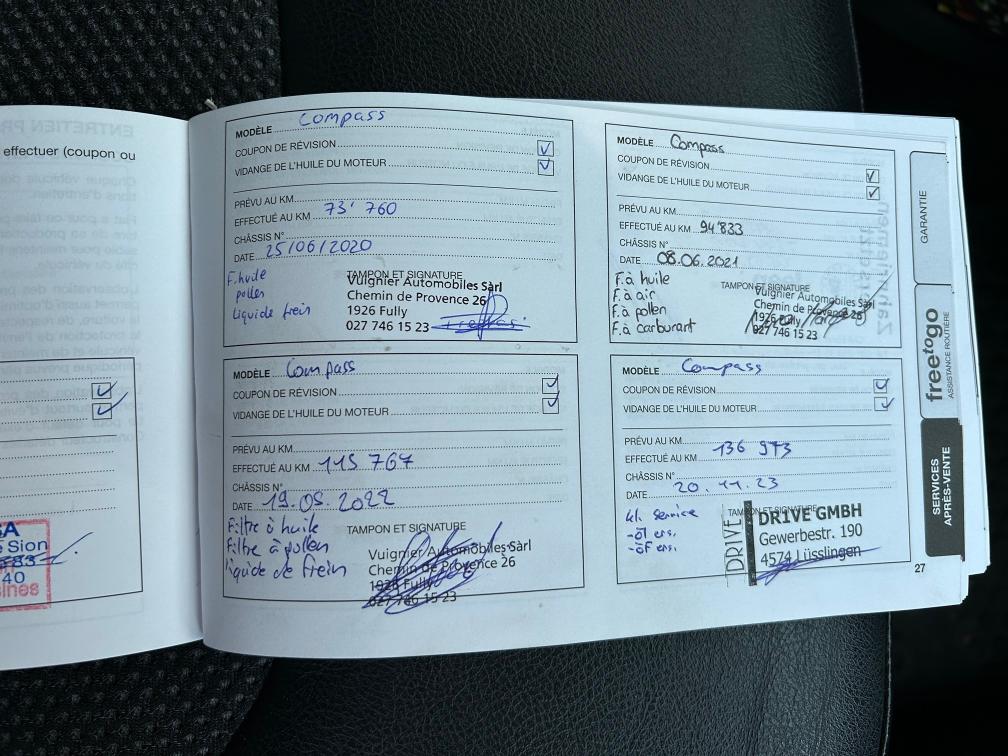 effectuer (coupon ou
SA
Sion
83
40
ines
MODÈLE Compass
COUPON DE RÉVISION
VIDANGE DE L'HUILE DU MOTEUR
PRÉVU AU KM
EFFECTUÉ AU KM 73'760
CHÂSSIS N°
DATE 25/06/2020
F.huile
pollen
Liquide frein
TAMPON ET SIGNATURE
Vuignier Automobiles Sàrl
Chemin de Provence 26
1926 Fully
027 746 15 23
MODÈLE Compass
COUPON DE RÉVISION
VIDANGE DE L'HUILE DU MOTEUR
PRÉVU AU KM
EFFECTUÉ AU KM 94'833
CHÂSSIS N°
DATE 08.06.2021
F.à huile
F.à air
F.à pollen
F.à carburant
TAMPON ET SIGNATURE
Vuignier Automobiles Sàrl
Chemin de Provence 26
1926 Fully
027 746 15 23
MODÈLE Compass
COUPON DE RÉVISION
VIDANGE DE L'HUILE DU MOTEUR
PRÉVU AU KM
EFFECTUÉ AU KM 115 767
CHÂSSIS N°
DATE 19.05.2022
Filtre à huile
Filtre à pollen
liquide de frein
TAMPON ET SIGNATURE
Vuignier Automobiles Sàrl
Chemin de Provence 26
1926 Fully
027 746 15 23
MODÈLE Compass
COUPON DE RÉVISION
VIDANGE DE L'HUILE DU MOTEUR
PRÉVU AU KM
EFFECTUÉ AU KM 136 973
CHÂSSIS N°
DATE 20.11.23
kl. service
-öl ers.
-öF ers.
TAMPON ET SIGNATURE
DRIVE
DRIVE GMBH
Gewerbestr. 190
4574 Lüsslingen
GARANTIE
freetogo
ASSISTANCE ROUTIÈRE
SERVICES
APRÈS-VENTE
27